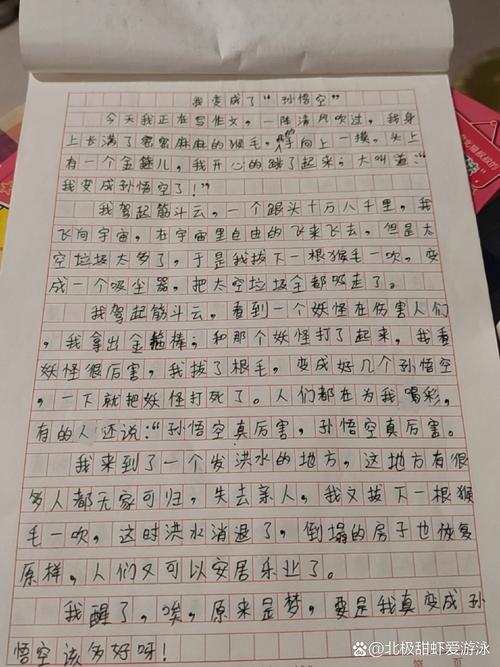 我变成了“孙悟空”
今天我正在写作文，一阵清风吹过，我身
上长满了密密麻麻的猴毛，我的手向上一摸。头上
有一个金箍儿，我开心的跳了起来；大叫道：“
我变成孙悟空了！”
我驾起筋斗云，一个跟头十万八千里，我
飞向宇宙，在宇宙里自由的飞来飞去，但是太
空垃圾太多了，于是我拔下一根猴毛一吹，变
成一个吸尘器，把太空垃圾全都吸走了。
我驾起筋斗云，看到一个妖怪在伤害人们
，我拿出金箍棒，和那个妖怪打了起来，我看
妖怪很厉害，我拔了根毛，变成好几个孙悟空
，一下就把妖怪打死了。人们都在为我喝彩，
有的人还说：“孙悟空真厉害，孙悟空真厉害。
我来到了一个发洪水的地方，这地方有很
多人都无家可归，失去亲人，我又拔下一根猴
毛一吹，这时洪水消退了，倒塌的房子也恢复
原样，人们又可以安居乐业了。
我醒了，唉，原来是梦，要是我真变成孙
悟空该多好呀！
@北极甜虾爱游泳